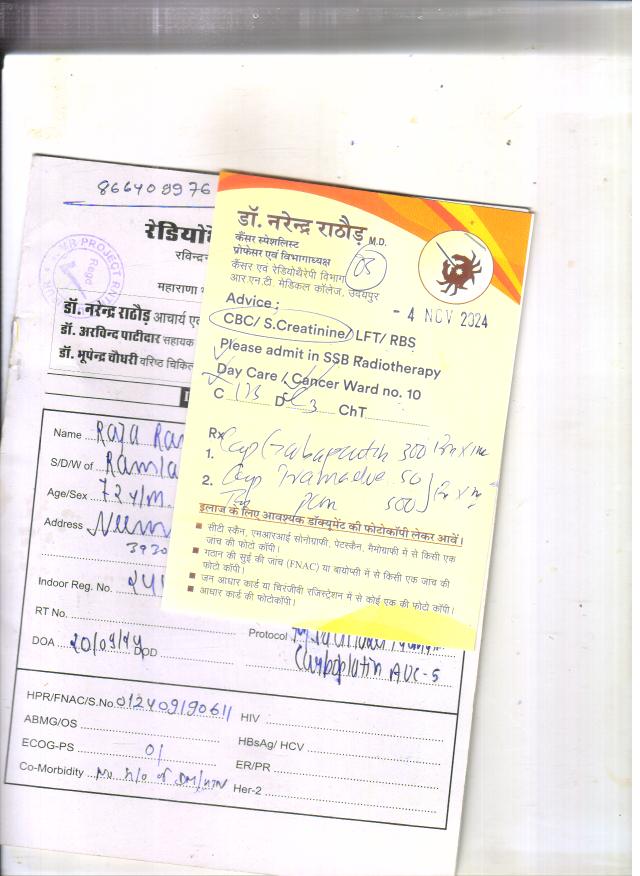 8664089976
रेडियो
रविन्द्र
महाराणा
डॉ. नरेन्द्र राठौड़ आचार्य
डॉ. अरविन्द पाटीदार सहायक
डॉ. भूपेन्द्र चौधरी वरिष्ठ
Name Raja
S/D/W of
Age/Sex 72y/m.
Address
Indoor Reg. No.
RT No.
DOA 20/09/24 DOD
Protocol
Carboplatin AUC-5
HPR/FNAC/S.No. 012409190611 HIV
ABMG/OS
HBsAg/ HCV
ECOG-PS 01
ER/PR
Co-Morbidity No h/o of DM/HTN Her-2
डॉ. नरेन्द्र राठौड़ M.D.
कैंसर स्पेशलिस्ट
प्रोफेसर एवं विभागाध्यक्ष
कैंसर एवं रेडियोथैरेपी विभाग
आर.एन.टी. मेडिकल कॉलेज, उदयपुर
- 4 NOV 2024
Advice ;
CBC/ S.Creatinine/ LFT/ RBS
Please admit in SSB Radiotherapy
Day Care / Cancer Ward no. 10
C D 3 ChT
Rx
1. Cap Gabapentin 300
2. Cap Tramadol 50
Tab pcm 500
इलाज के लिए आवश्यक डॉक्यूमेंट की फोटोकॉपी लेकर आवें।
सीटी स्कैन, एमआरआई सोनोग्राफी, पेटस्कैन, मैमोग्राफी में से किसी एक
जांच की फोटो कॉपी।
गठान की सुई की जांच (FNAC) या बायोप्सी में से किसी एक जांच की
फोटो कॉपी।
जन आधार कार्ड या चिरंजीवी रजिस्ट्रेशन में से कोई एक की फोटो कॉपी।
आधार कार्ड की फोटोकॉपी।